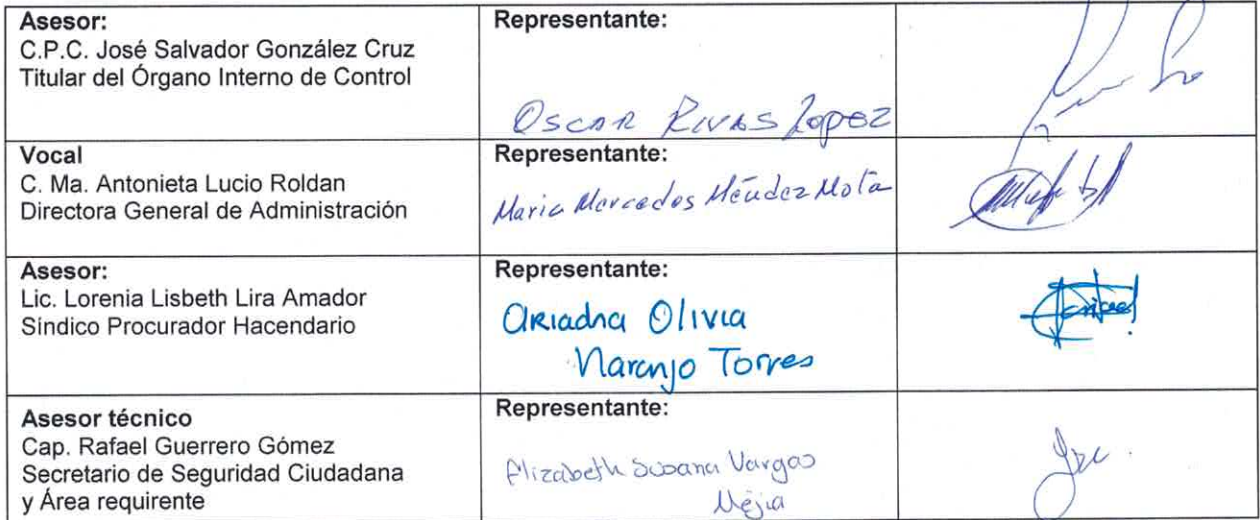 Asesor:
C.P.C. José Salvador González Cruz
Titular del Órgano Interno de Control
Representante:
Oscar Rivas Lopez
Vocal
C. Ma. Antonieta Lucio Roldan
Directora General de Administración
Representante:
Maria Mercedes Méndez Mota
Asesor:
Lic. Lorenia Lisbeth Lira Amador
Síndico Procurador Hacendario
Representante:
Ariadna Olivia
Naranjo Torres
Asesor técnico
Cap. Rafael Guerrero Gómez
Secretario de Seguridad Ciudadana
y Área requirente
Representante:
Elizabeth Susana Vargas
Mejia